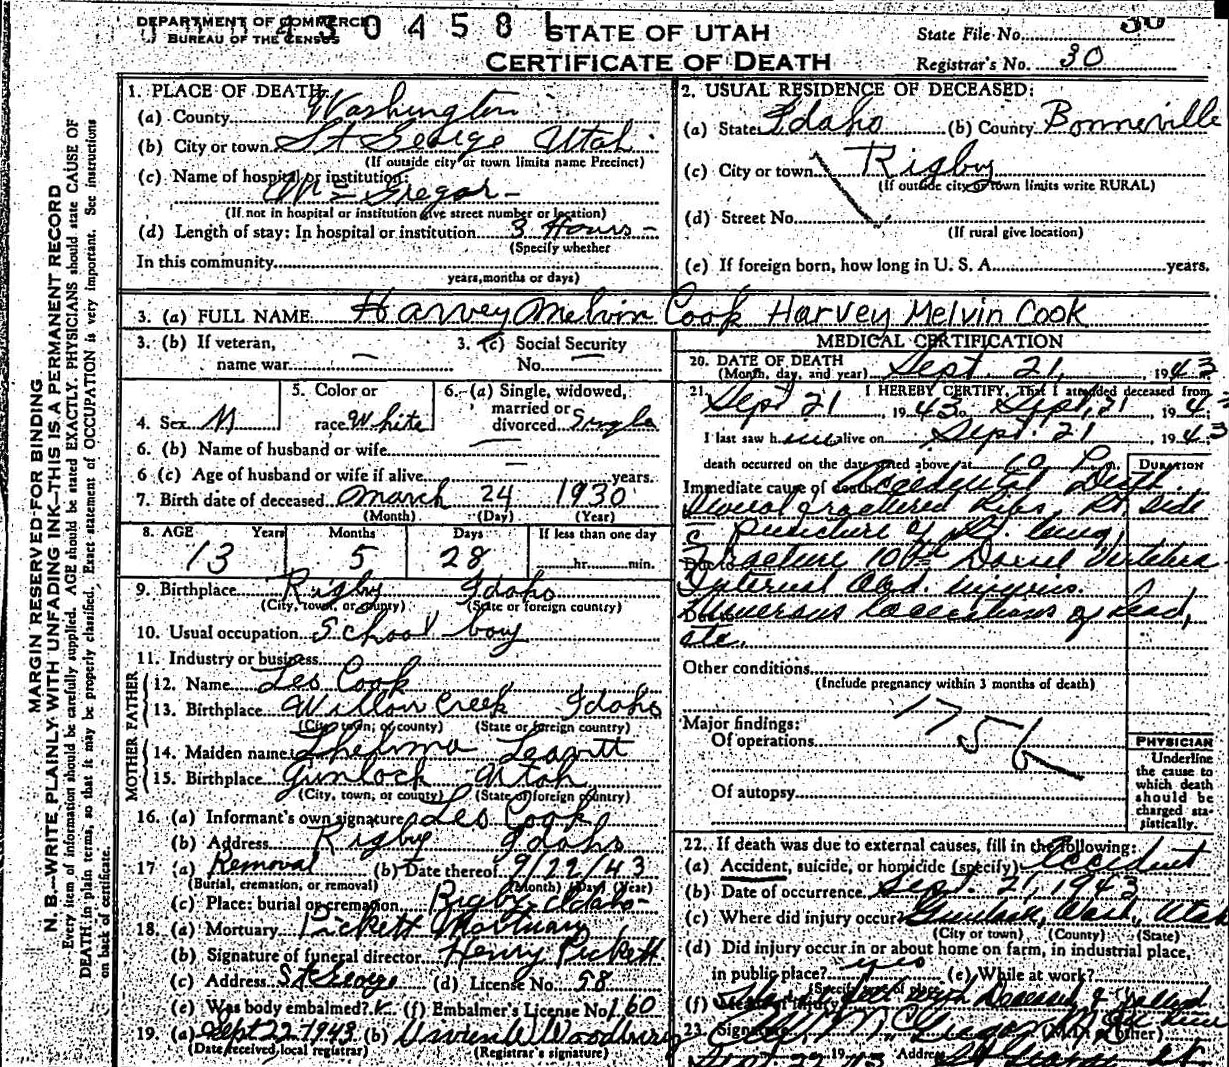 DEPARTMENT OF COMMERCE
BUREAU OF THE CENSUS
430458
STATE OF UTAH
CERTIFICATE OF DEATH
State File No. 30
Registrar's No. 30
MARGIN RESERVED FOR BINDING
N. B.—WRITE PLAINLY WITH UNFADING INK—THIS IS A PERMANENT RECORD
Every item of information should be carefully supplied. AGE should be stated EXACTLY. PHYSICIANS should state CAUSE OF
DEATH in plain terms, so that it may be properly classified. Exact statement of OCCUPATION is very important. See instructions
on back of certificate.
1. PLACE OF DEATH:
(a) County Washington
(b) City or town St George Utah
(If outside city or town limits name Precinct)
(c) Name of hospital or institution:
McGregor
(If not in hospital or institution give street number or location)
(d) Length of stay: In hospital or institution 3 Hours
(Specify whether
In this community
years, months or days)
2. USUAL RESIDENCE OF DECEASED:
(a) State Idaho (b) County Bonneville
(c) City or town Rigby
(If outside city or town limits write RURAL)
(d) Street No.
(If rural give location)
(e) If foreign born, how long in U. S. A. years.
3. (a) FULL NAME Harvey Melvin Cook Harvey Melvin Cook
3. (b) If veteran,
name war —
3. (c) Social Security
No. —
4. Sex M
5. Color or
race White
6. (a) Single, widowed,
married or
divorced Single
6. (b) Name of husband or wife —
6 (c) Age of husband or wife if alive — years.
7. Birth date of deceased March 24 1930
(Month) (Day) (Year)
8. AGE Years Months Days If less than one day
13 5 28 hr. min.
9. Birthplace Rigby Idaho
(City, town, or county) (State or foreign country)
10. Usual occupation School boy
11. Industry or business
FATHER
12. Name Les Cook
13. Birthplace Willow Creek Idaho
(City, town, or county) (State or foreign country)
MOTHER
14. Maiden name Thelma Leavitt
15. Birthplace Gunlock Utah
(City, town, or county) (State or foreign country)
16. (a) Informant's own signature Les Cook
(b) Address Rigby Idaho
17 (a) Removal (b) Date thereof 9/22/43
(Burial, cremation, or removal) (Month) (Day) (Year)
(c) Place: burial or cremation Rigby Idaho
18. (a) Mortuary Pickett Mortuary
(b) Signature of funeral director Henry Pickett
(c) Address St George (d) License No. 58
(e) Was body embalmed? (f) Embalmer's License No. 160
19. (a) Sept 22 1943 (b) Woodbury
(Date received local registrar) (Registrar's signature)
MEDICAL CERTIFICATION
20. DATE OF DEATH
(Month, day, and year) Sept. 21, 1943
21. I HEREBY CERTIFY, That I attended deceased from
Sept 21, 1943 to Sept. 21, 194
I last saw him alive on Sept. 21, 194
death occurred on the date stated above at P.m.
DURATION
Immediate cause of death Accidental Death.
Several fractured Ribs, Rt. side
Puncture of Rt. lung,
Fracture 10th Dorsal Vertebra
Internal Abd. injuries.
Numerous lacerations of head,
etc.
Other conditions
(Include pregnancy within 3 months of death)
Major findings:
Of operations
Of autopsy
PHYSICIAN
Underline
the cause to
which death
should be
charged sta-
tistically.
22. If death was due to external causes, fill in the following:
(a) Accident, suicide, or homicide (specify) Accident
(b) Date of occurrence Sept. 21, 1943
(c) Where did injury occur Gunlock, Wash, Utah
(City or town) (County) (State)
(d) Did injury occur in or about home on farm, in industrial place,
in public place? yes (e) While at work?
(Specify type of place)
(f) Means of injury
23. Signature McGregor
Sept. 22 1943 Address St George Ut.